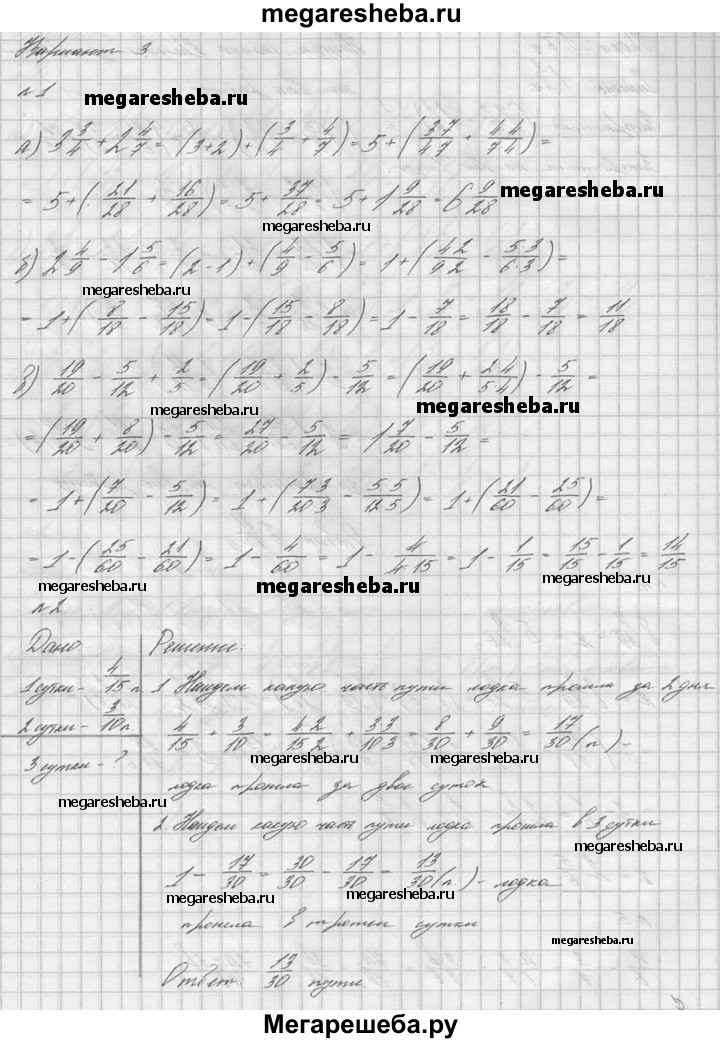 megaresheba.ru
Вариант 3
№1
megaresheba.ru
а) 3 3/4 + 2 4/7 = (3+2) + (3/4 + 4/7) = 5 + (3·7/4·7 + 4·4/7·4) =
= 5 + (21/28 + 16/28) = 5 + 37/28 = 5 + 1 9/28 = 6 9/28
megaresheba.ru
megaresheba.ru
б) 2 4/9 - 1 5/6 = (2-1) + (4/9 - 5/6) = 1 + (4·2/9·2 - 5·3/6·3) =
megaresheba.ru
= 1 + (8/18 - 15/18) = 1 - (15/18 - 8/18) = 1 - 7/18 = 18/18 - 7/18 = 11/18
в) 19/20 - 5/12 + 2/5 = (19/20 + 2/5) - 5/12 = (19/20 + 2·4/5·4) - 5/12 =
megaresheba.ru
megaresheba.ru
= (19/20 + 8/20) - 5/12 = 27/20 - 5/12 = 1 7/20 - 5/12 =
= 1 + (7/20 - 5/12) = 1 + (7·3/20·3 - 5·5/12·5) = 1 + (21/60 - 25/60) =
= 1 - (25/60 - 21/60) = 1 - 4/60 = 1 - 4/4·15 = 1 - 1/15 = 15/15 - 1/15 = 14/15
megaresheba.ru
megaresheba.ru
megaresheba.ru
№2
Дано:
1 сутки - 4/15 п.
2 сутки - 3/10 п.
3 сутки - ?
megaresheba.ru
Решение:
1. Найдем какую часть пути лодка прошла за 2 дня
4/15 + 3/10 = 4·2/15·2 + 3·3/10·3 = 8/30 + 9/30 = 17/30 (п.) -
megaresheba.ru
megaresheba.ru
лодка прошла за двое суток
2. Найдем какую часть пути лодка прошла в 3 сутки
megaresheba.ru
1 - 17/30 = 30/30 - 17/30 = 13/30 (п.) - лодка
megaresheba.ru
megaresheba.ru
прошла в третьи сутки
megaresheba.ru
Ответ: 13/30 пути.
megaresheba.ru
Мегарешеба.ру